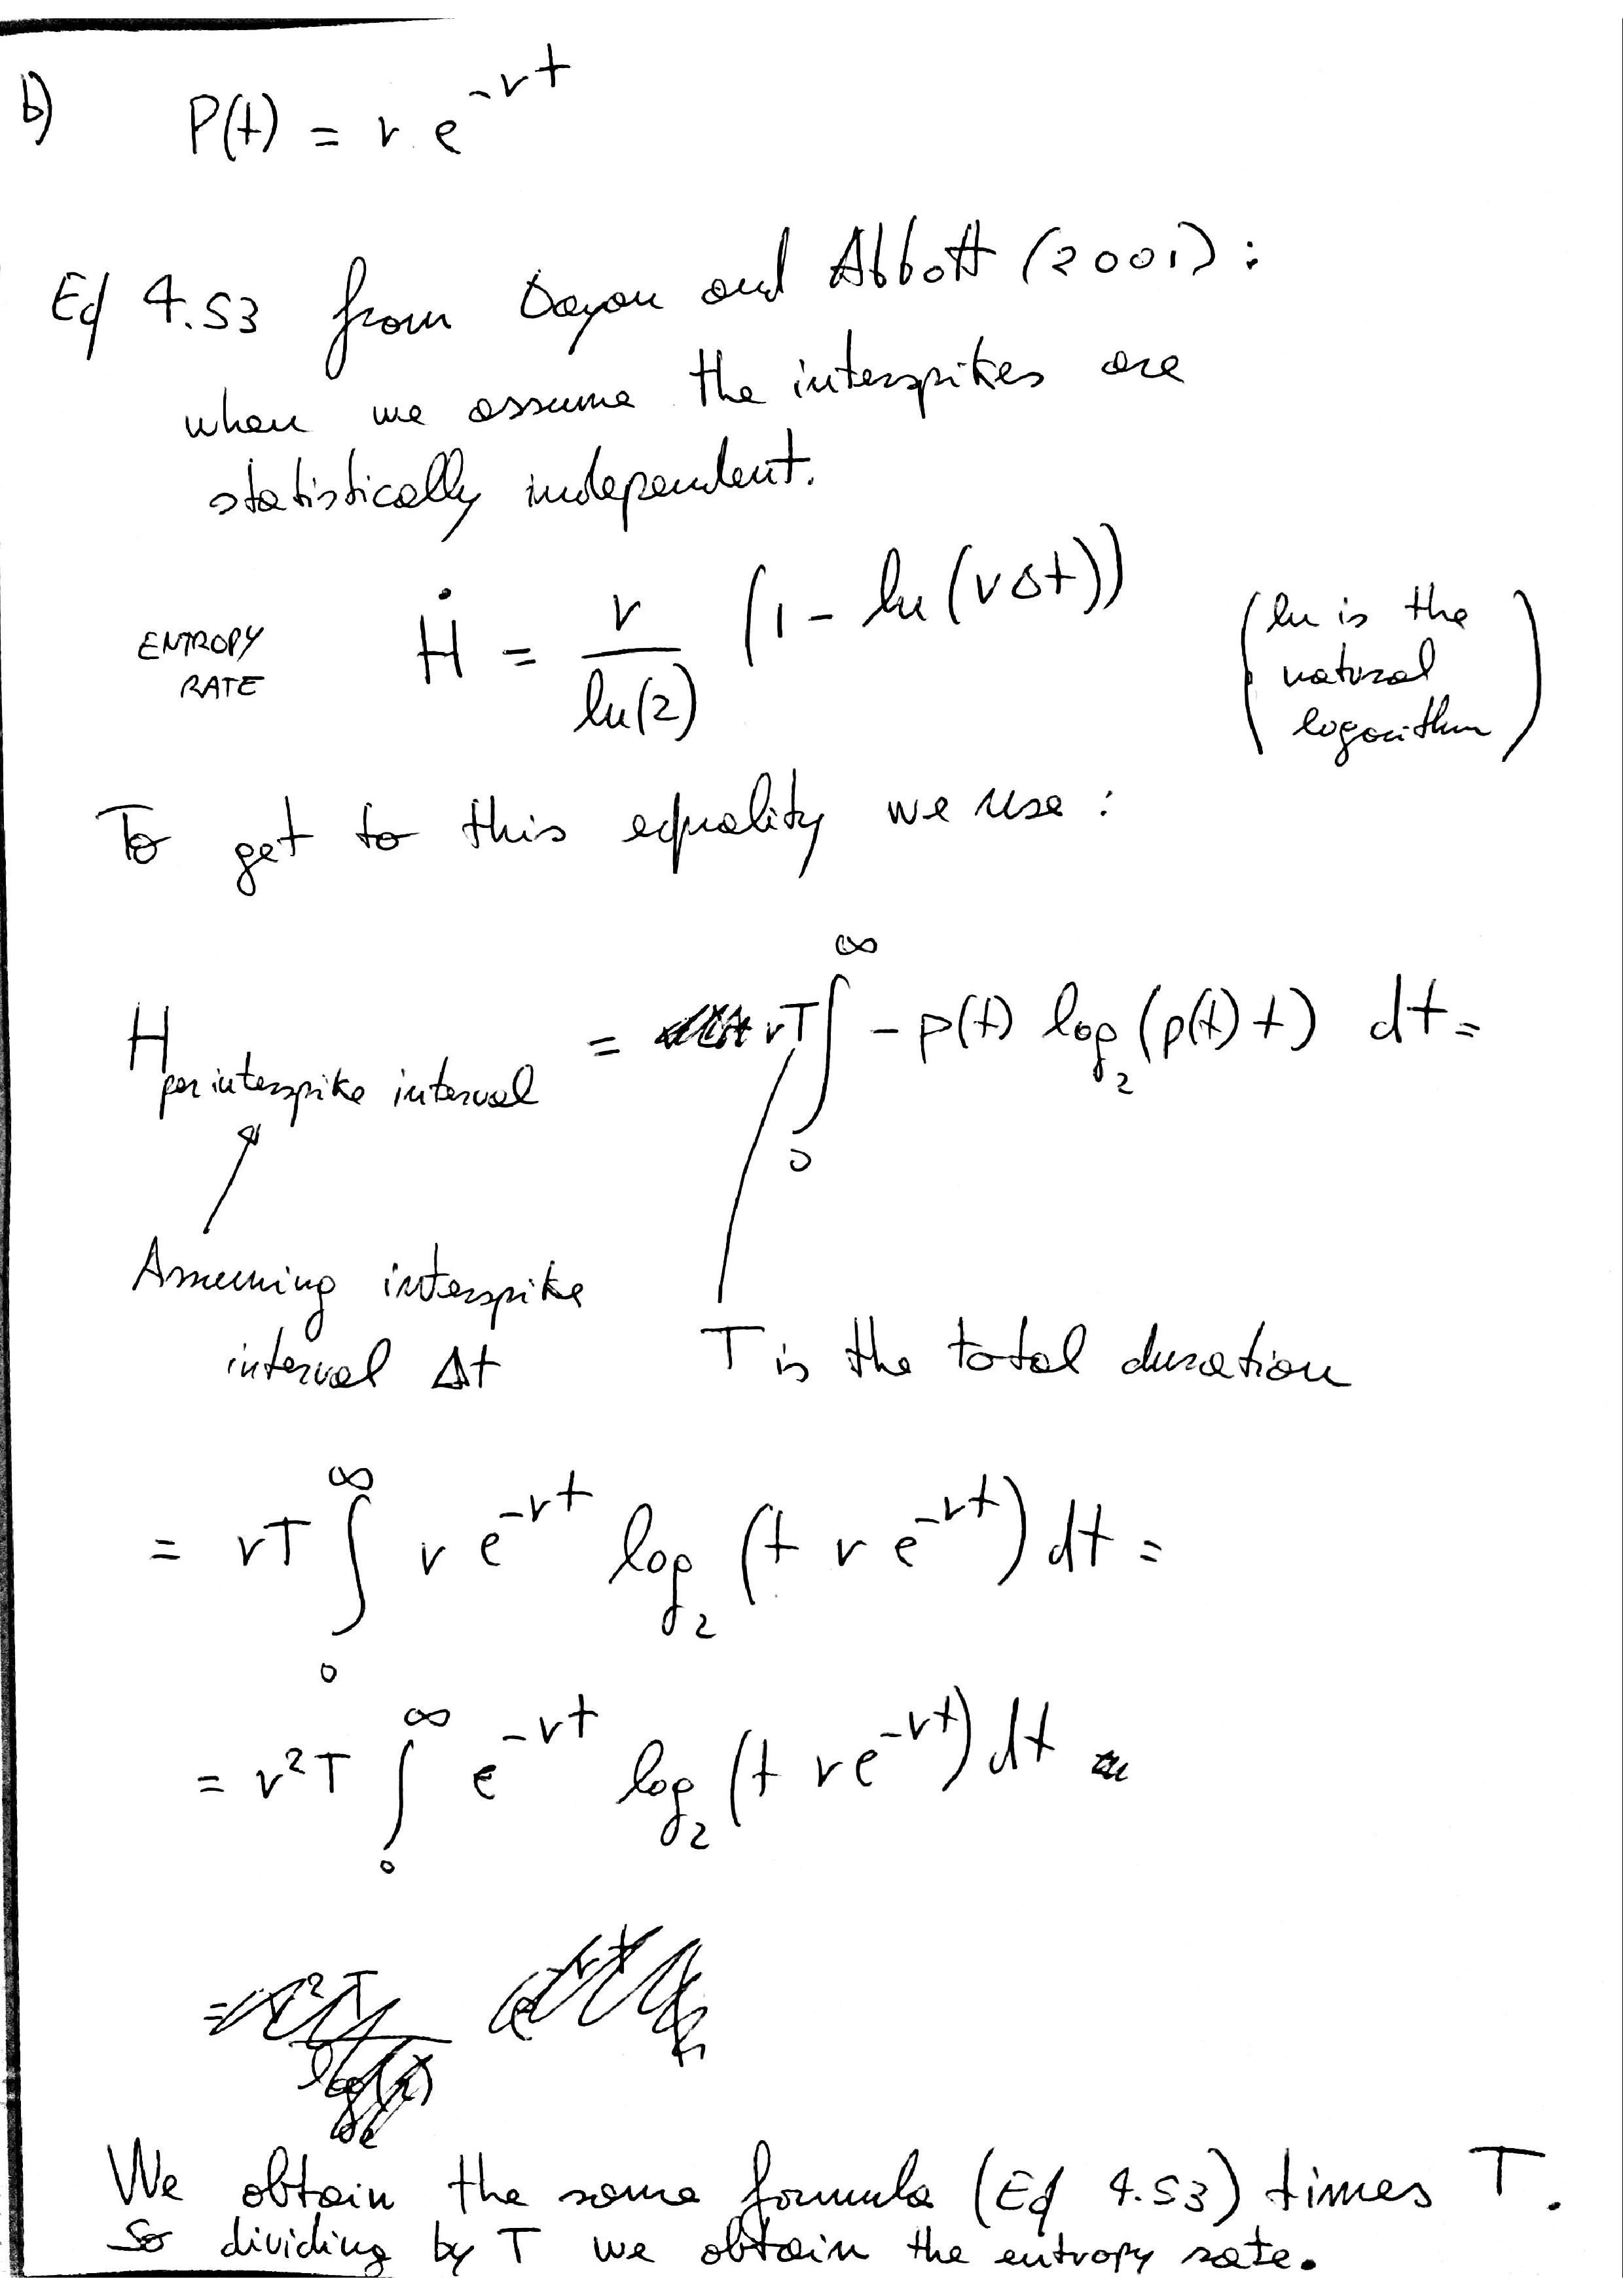 b) P(t) = r e^{-rt}
Eq 4.53 from Dayan and Abbott (2001):
when we assume the interspikes are
statistically independent.
ENTROPY RATE Ḣ = r/ln(2) (1 - ln(rΔt)) (ln is the natural logarithm)
To get to this equality we use:
H per interspike interval = rT ∫_0^∞ - p(t) log_2 (p(t) t) dt =
Assuming interspike
interval Δt
T is the total duration
= rT ∫_0^∞ r e^{-rt} log_2 (t r e^{-rt}) dt =
= r² T ∫_0^∞ e^{-rt} log_2 (t r e^{-rt}) dt
We obtain the same formula (Eq 4.53) times T.
So dividing by T we obtain the entropy rate.